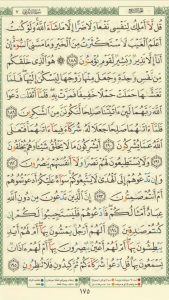 قُل لَّآ أَمْلِكُ لِنَفْسِى نَفْعًا وَلَا ضَرًّا إِلَّا مَا شَآءَ ٱللَّهُ وَلَوْ كُنتُ
أَعْلَمُ ٱلْغَيْبَ لَٱسْتَكْثَرْتُ مِنَ ٱلْخَيْرِ وَمَا مَسَّنِىَ ٱلسُّوٓءُ إِنْ
أَنَا۠ إِلَّا نَذِيرٌ وَبَشِيرٌ لِّقَوْمٍ يُؤْمِنُونَ ١٨٨ هُوَ ٱلَّذِى خَلَقَكُم
مِّن نَّفْسٍ وَٰحِدَةٍ وَجَعَلَ مِنْهَا زَوْجَهَا لِيَسْكُنَ إِلَيْهَا فَلَمَّا
تَغَشَّىٰهَا حَمَلَتْ حَمْلًا خَفِيفًا فَمَرَّتْ بِهِۦ فَلَمَّآ أَثْقَلَت دَّعَوَا
ٱللَّهَ رَبَّهُمَا لَئِنْ ءَاتَيْتَنَا صَٰلِحًا لَّنَكُونَنَّ مِنَ ٱلشَّٰكِرِينَ ١٨٩
فَلَمَّآ ءَاتَىٰهُمَا صَٰلِحًا جَعَلَا لَهُۥ شُرَكَآءَ فِيمَآ ءَاتَىٰهُمَا فَتَعَٰلَى
ٱللَّهُ عَمَّا يُشْرِكُونَ ١٩٠ أَيُشْرِكُونَ مَا لَا يَخْلُقُ شَيْـًٔا وَهُمْ يُخْلَقُونَ ١٩١
وَلَا يَسْتَطِيعُونَ لَهُمْ نَصْرًا وَلَآ أَنفُسَهُمْ يَنصُرُونَ ١٩٢
وَإِن تَدْعُوهُمْ إِلَى ٱلْهُدَىٰ لَا يَتَّبِعُوكُمْ سَوَآءٌ عَلَيْكُمْ أَدَعَوْتُمُوهُمْ
أَمْ أَنتُمْ صَٰمِتُونَ ١٩٣ إِنَّ ٱلَّذِينَ تَدْعُونَ مِن دُونِ ٱللَّهِ
عِبَادٌ أَمْثَالُكُمْ فَٱدْعُوهُمْ فَلْيَسْتَجِيبُوا۟ لَكُمْ إِن
كُنتُمْ صَٰدِقِينَ ١٩٤ أَلَهُمْ أَرْجُلٌ يَمْشُونَ بِهَآ أَمْ لَهُمْ أَيْدٍ
يَبْطِشُونَ بِهَآ أَمْ لَهُمْ أَعْيُنٌ يُبْصِرُونَ بِهَآ أَمْ لَهُمْ ءَاذَانٌ
يَسْمَعُونَ بِهَا قُلِ ٱدْعُوا۟ شُرَكَآءَكُمْ ثُمَّ كِيدُونِ فَلَا تُنظِرُونِ ١٩٥
١٧٥